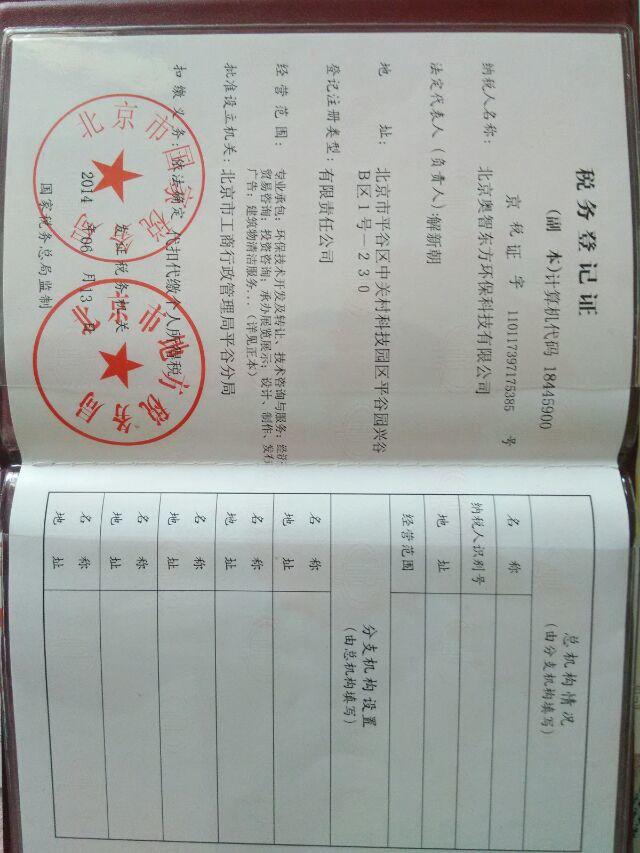 税务登记证
(副 本)计算机代码 18445900
京 税 证 字 110117397175385 号
纳税人名称: 北京奥智东方环保科技有限公司
法定代表人(负责人):解新朝
地 址: 北京市平谷区中关村科技园区平谷园兴谷
B区1号-230
登记注册类型: 有限责任公司
经 营 范 围: 专业承包;环保技术开发及转让、技术咨询与服务;经济
贸易咨询;投资咨询;承办展览展示;设计、制作、发布
广告;建筑物清洁服务...(详见正本)
批准设立机关: 北京市工商行政管理局平谷分局
扣 缴 义 务: 依法确定 代扣代缴个人所得税
发证税务机关
2014 年 06 月 13 日
国家税务总局监制
总机构情况
(由分支机构填写)
名 称
纳税人识别号
地 址
经营范围
分支机构设置
(由总机构填写)
名 称
地 址
名 称
地 址
名 称
地 址
名 称
地 址
名 称
地 址